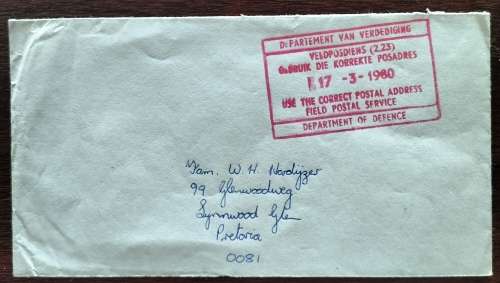 DEPARTEMENT VAN VERDEDIGING
VELDPOSDIENS (2,23)
GEBRUIK DIE KORREKTE POSADRES
17 -3-1980
USE THE CORRECT POSTAL ADDRESS
FIELD POSTAL SERVICE
DEPARTMENT OF DEFENCE
Fam. W. H. Nordijzer
99 Glenwoodweg
Lynnwood Glen
Pretoria
0081